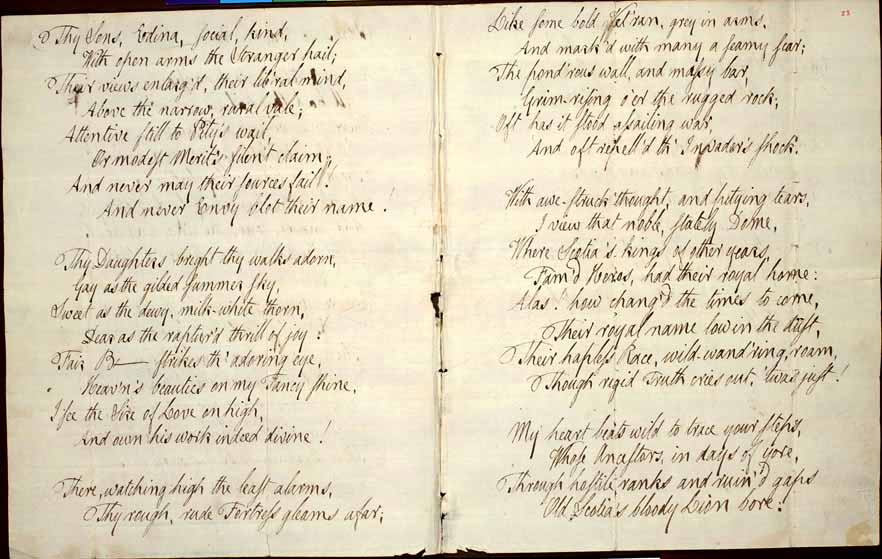 Thy Sons, Edina, social, kind,
With open arms the Stranger hail;
Their views enlarg'd, their lib'ral mind,
Above the narrow, rural vale;
Attentive still to Pity's wail,
Or modest Merit's silent claim;
And never may their sources fail!
And never Envy blot their name!
Thy Daughters bright thy walks adorn,
Gay as the gilded Summer sky,
Sweet as the dewy, milk-white thorn,
Dear as the raptur'd thrill of joy!
Fair B— strikes th' adoring eye,
Heav'n's beauties on my Fancy shine,
I see the Sire of Love on high,
And own his work indeed divine!
There, watching high the least alarms,
Thy rough, rude Fortress gleams afar;
23
Like some bold Vet'ran, grey in arms,
And mark'd with many a seamy scar;
The pond'rous wall, and massy bar,
Grim-rising o'er the rugged rock;
Oft has it stood assailing war,
And oft repell'd th' Invader's shock.
With awe-struck thought, and pitying tears,
I view that noble, stately Dome,
Where Scotia's kings of other years,
Fam'd Heroes, had their royal home:
Alas! how chang'd the times to come,
Their royal name low in the dust,
Their hapless Race, wild-wand'ring, roam,
Though rigid Truth cries out, 'twas just!
My heart beats wild to trace your steps,
Whose Ancestors, in days of yore,
Through hostile ranks and ruin'd gaps
Old Scotia's bloody Lion bore: